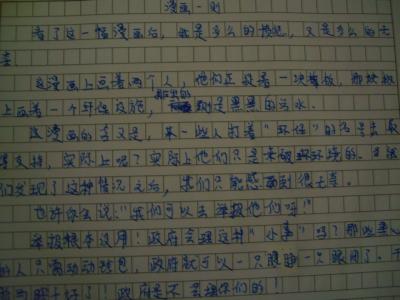 漫画一则
看了这一幅漫画后，我是多么的愤怒，又是多么的无
奈
这漫画上画着两个人，他们正投着一块牌板，那块板
上画着一个环保设施，流出的则是黑黑的污水。
这漫画的含义是，某一些人打着“环保”的口号去
得支持，实际上呢？实际上他们只是来破坏环境的。当我
们发现了这种情况之后，我们只能感到很无奈。
也许你会说：“我们可以去举报他们呀”
举报根本没用！政府会理这种“小事”吗？那些
的人只需动动钱包，政府就可以一只眼睁一只眼闭了。
！政府是不会理你们的！